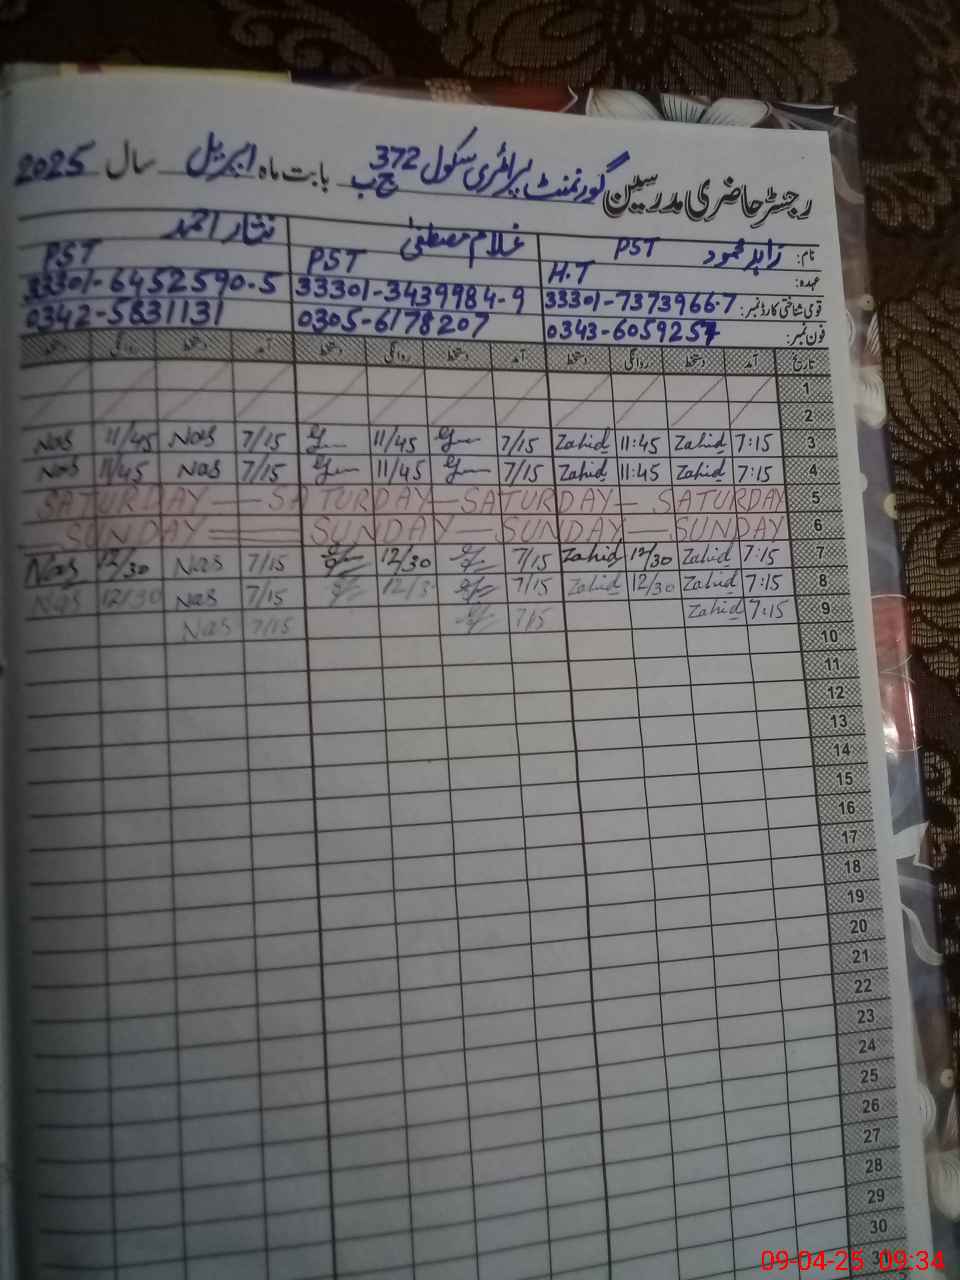 رجسٹر حاضری مدرسین گورنمنٹ پرائمری سکول 372 ج ب بابت ماہ اپریل سال 2025
نام: زاہد محمود PST غلام مصطفیٰ نثار احمد
عہدہ: H.T PST PST
قومی شناختی کارڈ نمبر: 33301-7373966-7 33301-3439984-9 33301-6452590-5
فون نمبر: 0343-6059257 0305-6178207 0342-5831131
تاریخ آمد دستخط روانگی دستخط آمد دستخط روانگی دستخط آمد دستخط روانگی دستخط
1
2
3 7:15 Zahid 11:45 Zahid 7/15 11/45 7/15 Nas 11/45 Nas
4 7:15 Zahid 11:45 Zahid 7/15 11/45 7/15 Nas 11/45 Nas
SATURDAY — SATURDAY — SATURDAY — SATURDAY 5
SUNDAY — SUNDAY — SUNDAY — SUNDAY 6
7 7:15 Zahid 12/30 Zahid 7/15 12/30 7/15 Nas 12/30 Nas
8 7:15 Zahid 12/30 Zahid 7/15 12/3 7/15 Nas 12/30 Nas
9 7:15 Zahid 7/15 7/15 Nas
10
11
12
13
14
15
16
17
18
19
20
21
22
23
24
25
26
27
28
29
30
09-04-25 09:34